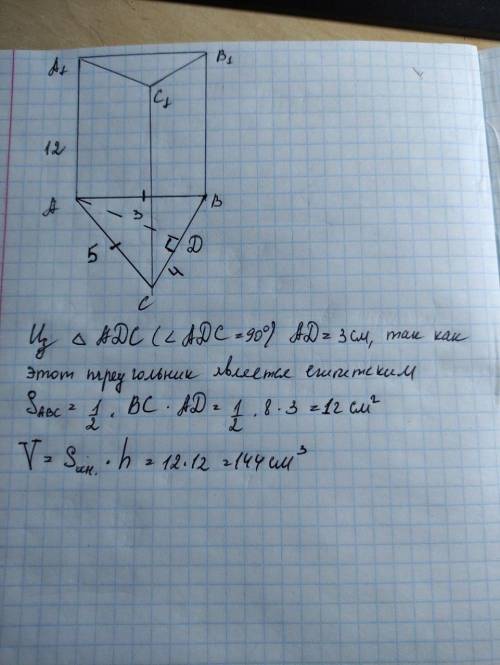 A₁
B₁
C₁
12
A
3
B
5
D
4
C
Из △ ADC (∠ ADC = 90°) AD = 3 см, так как
этот треугольник является египетским
S_ABC = 1/2 · BC · AD = 1/2 · 8 · 3 = 12 см²
V = S_осн. · h = 12 · 12 = 144 см³